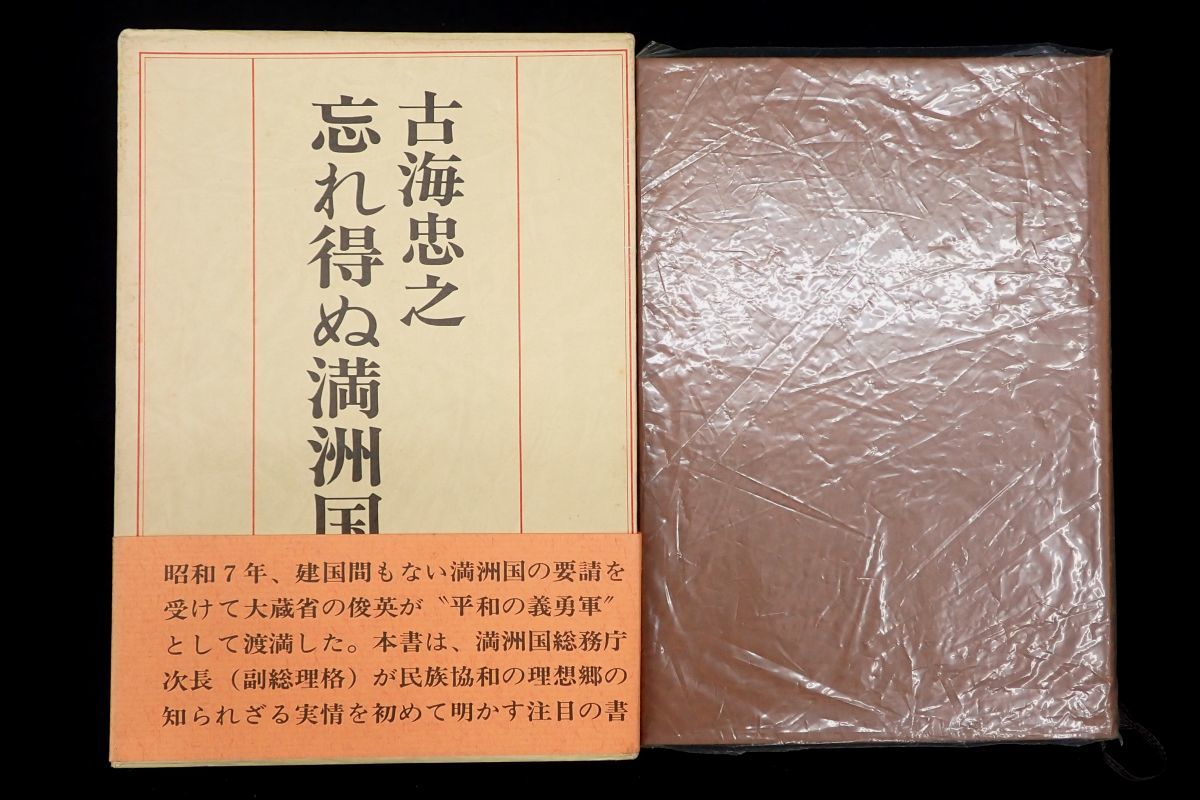 古海忠之
忘れ得ぬ満洲国
昭和7年、建国間もない満洲国の要請を
受けて大蔵省の俊英が〝平和の義勇軍〟
として渡満した。本書は、満洲国総務庁
次長（副総理格）が民族協和の理想郷の
知られざる実情を初めて明かす注目の書